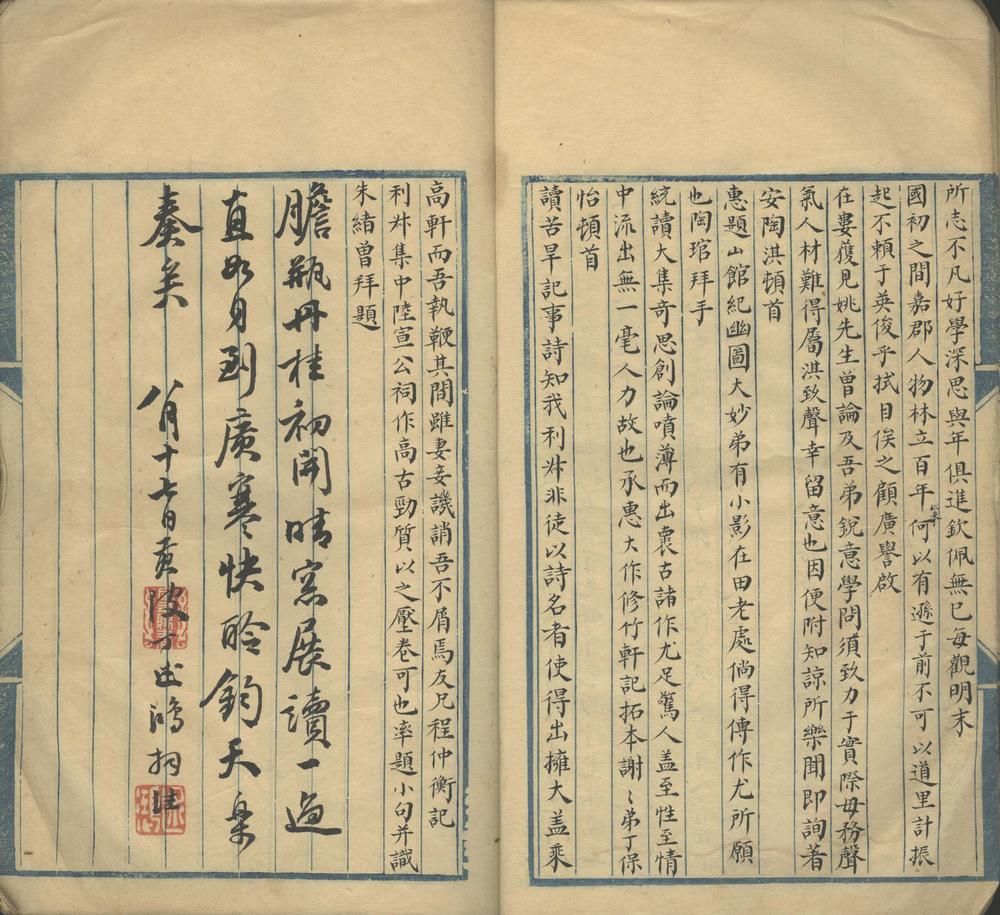 所志不凡好學深思與年俱進欽佩無已每觀明末
國初之間嘉郡人物林立百年何以有遜于前不可以道里計振
起不賴于英俊乎拭目俟之顧廣譽啟
在婁獲見姚先生曾論及吾弟銳意學問須致力于實際毋務聲
氣人材難得屬淇致聲幸留意也因便附知諒所樂聞即詢著
安陶淇頓首
惠題山館紀幽圖大妙弟有小影在田老處倘得傳作尤所願
也陶琯拜手
統讀大集奇思創論噴薄而出裹古諸作尤足驚人盖至性至情
中流出無一毫人力故也承惠大作修竹軒記拓本謝〻弟丁保
怡頓首
讀苦旱記事詩知我利𠦑非徒以詩名者使得出擁大盖乘
高軒而吾執鞭其間雖妻妾譏誚吾不屑焉友兄程仲衡記
利𠦑集中陸宣公祠作高古勁質以之壓卷可也率題小句并識
朱緒曾拜題
膽瓶丹桂初開晴窓展讀一過
直如身到廣寒快聆鈞天樂
奏矣 八月十七日黃陂
鴻